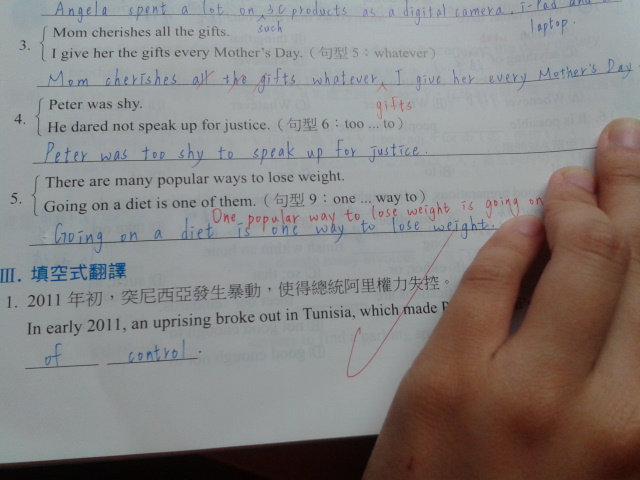 Angela spent a lot on 3C products as a digital camera, i-Pad and
such
laptop.
3. Mom cherishes all the gifts.
I give her the gifts every Mother's Day. (句型 5：whatever)
Mom cherishes all the gifts whatever I give her every Mother's Day
gifts
4. Peter was shy.
He dared not speak up for justice. (句型 6：too ... to)
Peter was too shy to speak up for justice.
5. There are many popular ways to lose weight.
Going on a diet is one of them. (句型 9：one ... way to)
One popular way to lose weight is going on
Going on a diet is one way to lose weight.
III. 填空式翻譯
1. 2011 年初，突尼西亞發生暴動，使得總統阿里權力失控。
In early 2011, an uprising broke out in Tunisia, which made
of control.